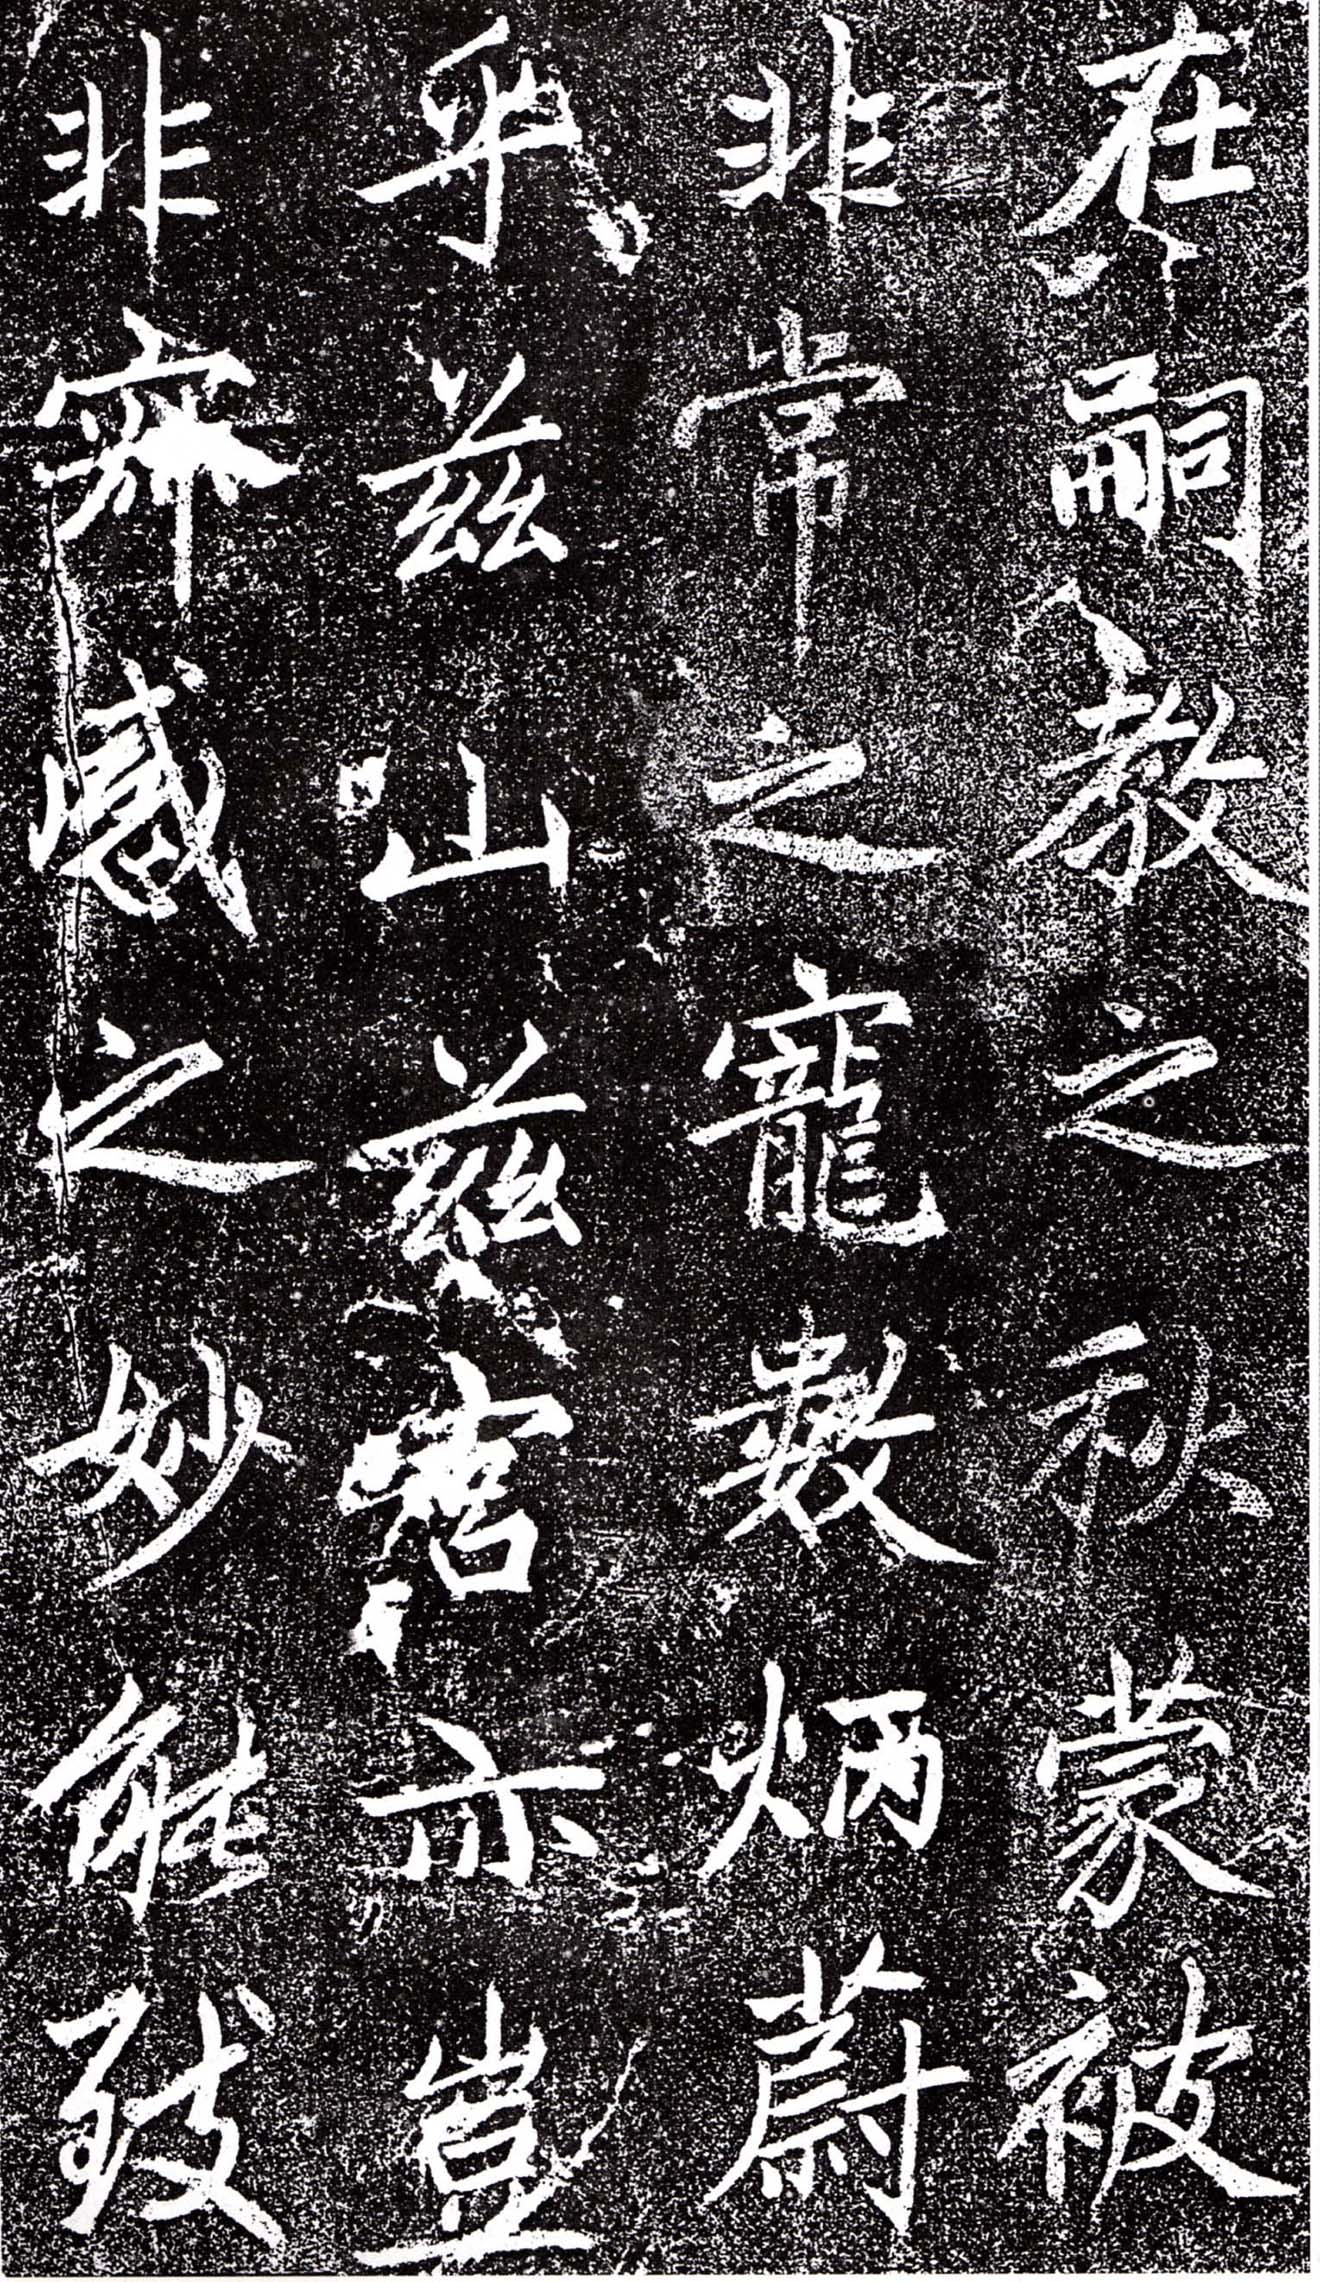 在嗣教之秋蒙被
非常之寵數炳蔚
乎茲山茲宫亦豈
非齋感之妙能致